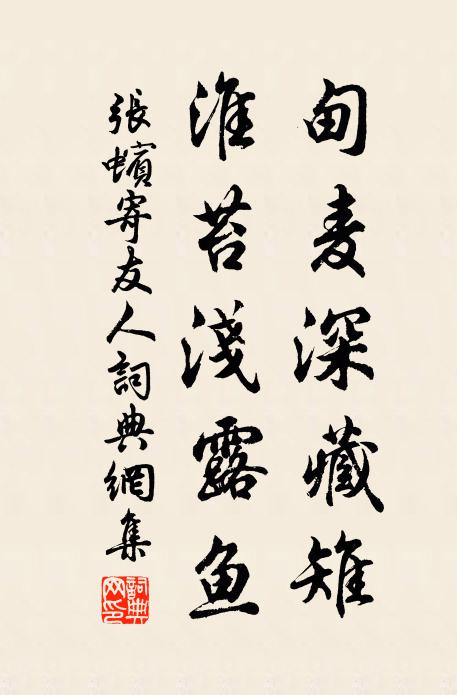 甸麦深藏雉
淮苔淺露鱼
張蠙寄友人詞典網集